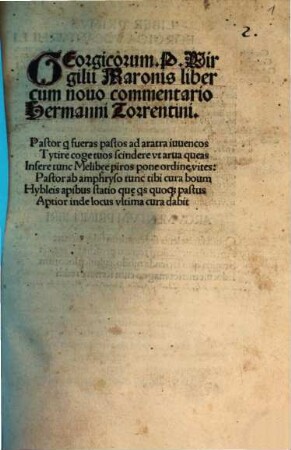 1
2.
GEorgicorum. P. Vir
gilii Maronis liber
cum nouo commentario
Hermanni Torrentini.
Pastor q fueras pastos ad aratra iuuencos
Tytire coge tuos scindere vt arua queas
Insere tunc Melibee piros pone ordine vites:
Pastor ab amphryso tunc tibi cura boum
Hybleis apibus statio quę qs quoqʒ pastus
Aptior inde locus vltima cura dabit